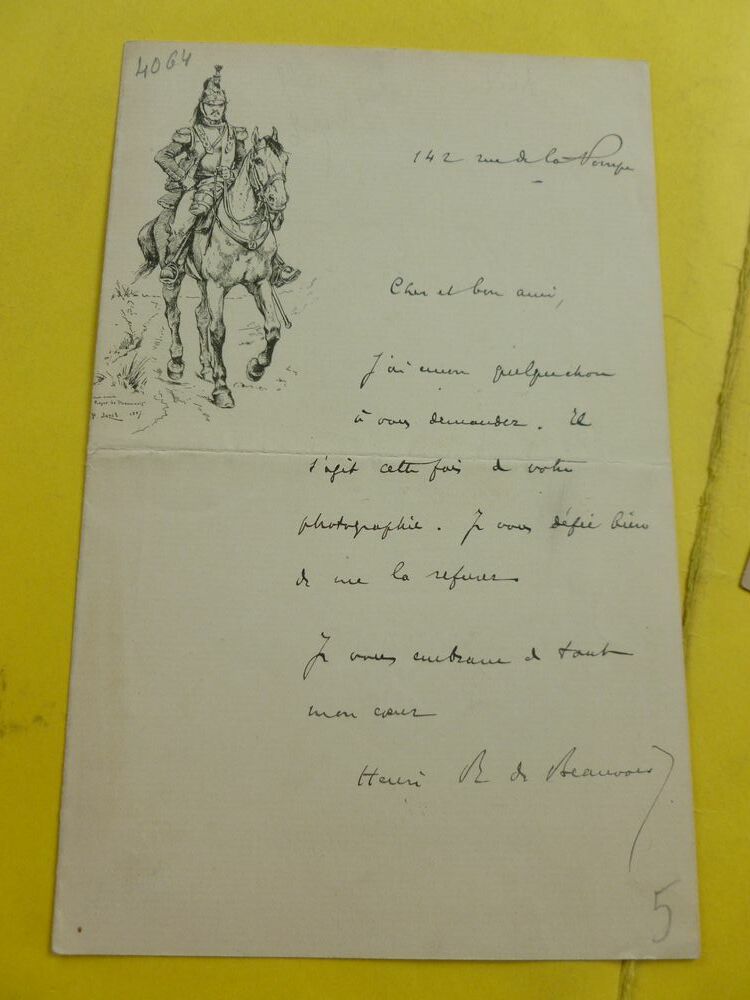 4064
142 rue de la Pompe
Cher et bon ami,
J'ai encore quelquechose
à vous demander. Il
s'agit cette fois de votre
photographie. Je vous défie bien
de me la refuser
Je vous embrasse de tout
mon cœur
Henri R. de Beauvoir
5